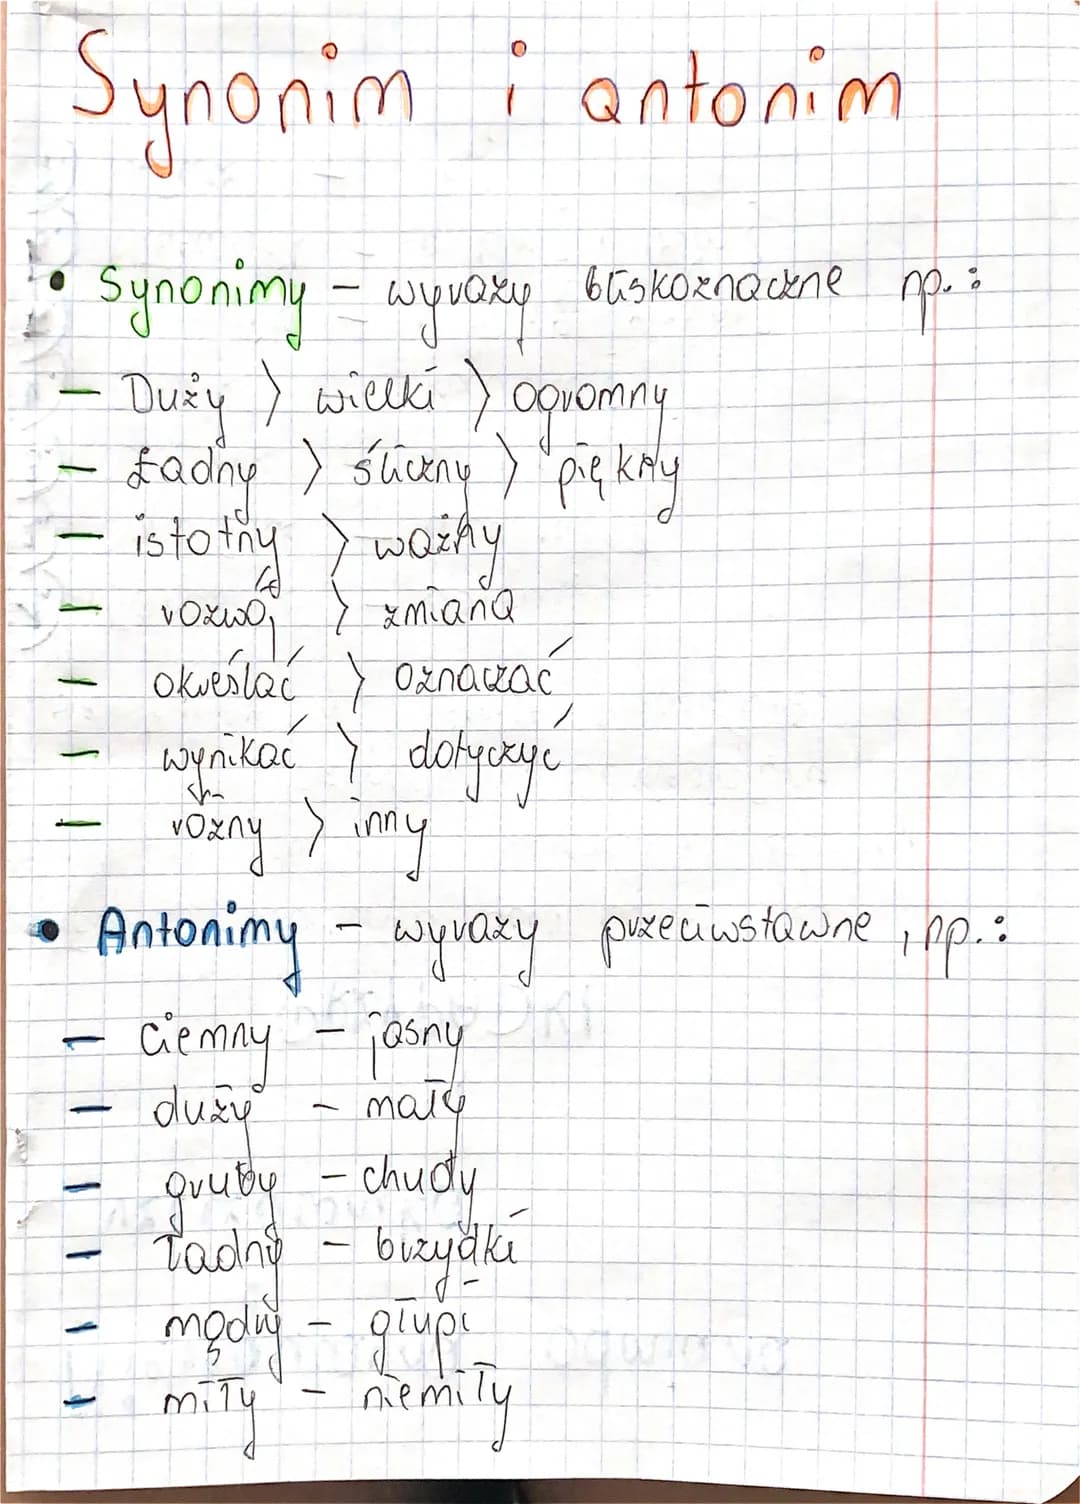 Synonim i antonim
• Synonimy - wyrazy bliskoznaczne np.:
- Duży > wielki > ogromny
- Ładny > śliczny > piękny
- istotny > ważny
- rozwój > zmiana
- określać > oznaczać
- wynikać > dotyczyć
- różny > inny
• Antonimy - wyrazy przeciwstawne, np.:
- ciemny - jasny
- duży - mały
- gruby - chudy
- ładny - brzydki
- mądry - głupi
- miły - niemiły